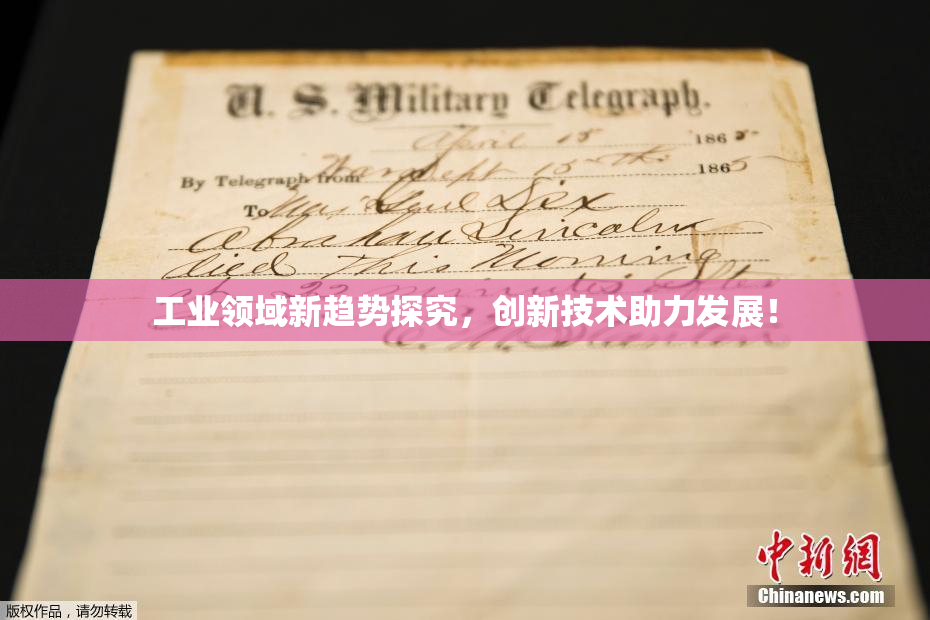 U. S. Military Telegraph.
April 15 1865
By Telegraph from War Dept 15th 1865
To Maj Genl Dix
Abraham Lincoln
died This Morning
at 22 minutes after
工业领域新趋势探究，创新技术助力发展！
E. M. Stanton
中新网
Chinanews.com
版权作品，请勿转载